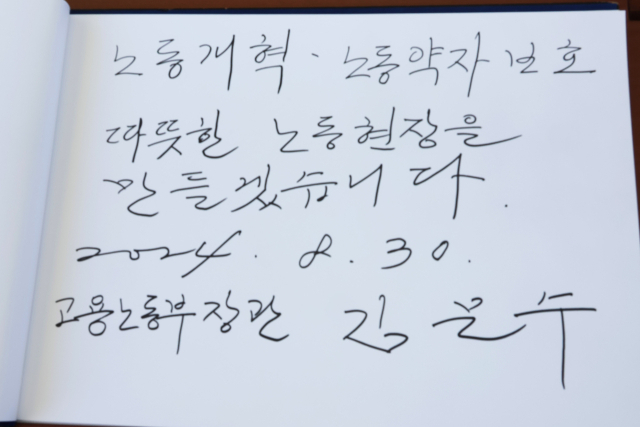 노동개혁·노동약자 보호
따뜻한 노동현장을
만들겠습니다.
2024. 8. 30.
고용노동부장관 김문수